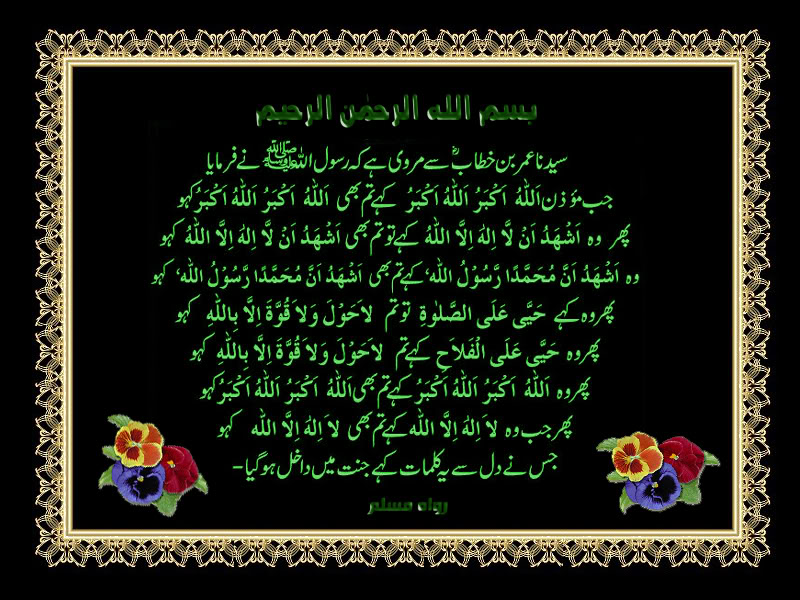 بسم الله الرحمٰن الرحيم
سیدنا عمر بن خطابؓ سے مروی ہے کہ رسول اللہ ﷺ نے فرمایا
جب مؤذن اَللهُ اَكْبَرُ اَللهُ اَكْبَرُ کہے تم بھی اَللهُ اَكْبَرُ اَللهُ اَكْبَرُ کہو
پھر وہ اَشْهَدُ اَنْ لَّا اِلٰهَ اِلَّا اللهُ کہے تو تم بھی اَشْهَدُ اَنْ لَّا اِلٰهَ اِلَّا اللهُ کہو
وہ اَشْهَدُ اَنَّ مُحَمَّدًا رَّسُوْلُ الله، کہے تم بھی اَشْهَدُ اَنَّ مُحَمَّدًا رَّسُوْلُ الله، کہو
پھر وہ کہے حَيَّى عَلَى الصَّلٰوةِ تو تم لاَحَوْلَ وَلاَ قُوَّةَ اِلَّا بِاللهِ کہو
پھر وہ حَيَّى عَلَى الْفَلاَحِ کہے تم لاَحَوْلَ وَلاَ قُوَّةَ اِلَّا بِاللهِ کہو
پھر وہ اَللهُ اَكْبَرُ اَللهُ اَكْبَرُ کہے تم بھی اَللهُ اَكْبَرُ اَللهُ اَكْبَرُ کہو
پھر جب وہ لاَ اِلٰهَ اِلَّا الله کہے تم بھی لاَ اِلٰهَ اِلَّا الله کہو
جس نے دل سے یہ کلمات کہے جنت میں داخل ہو گیا-
رواه مسلم